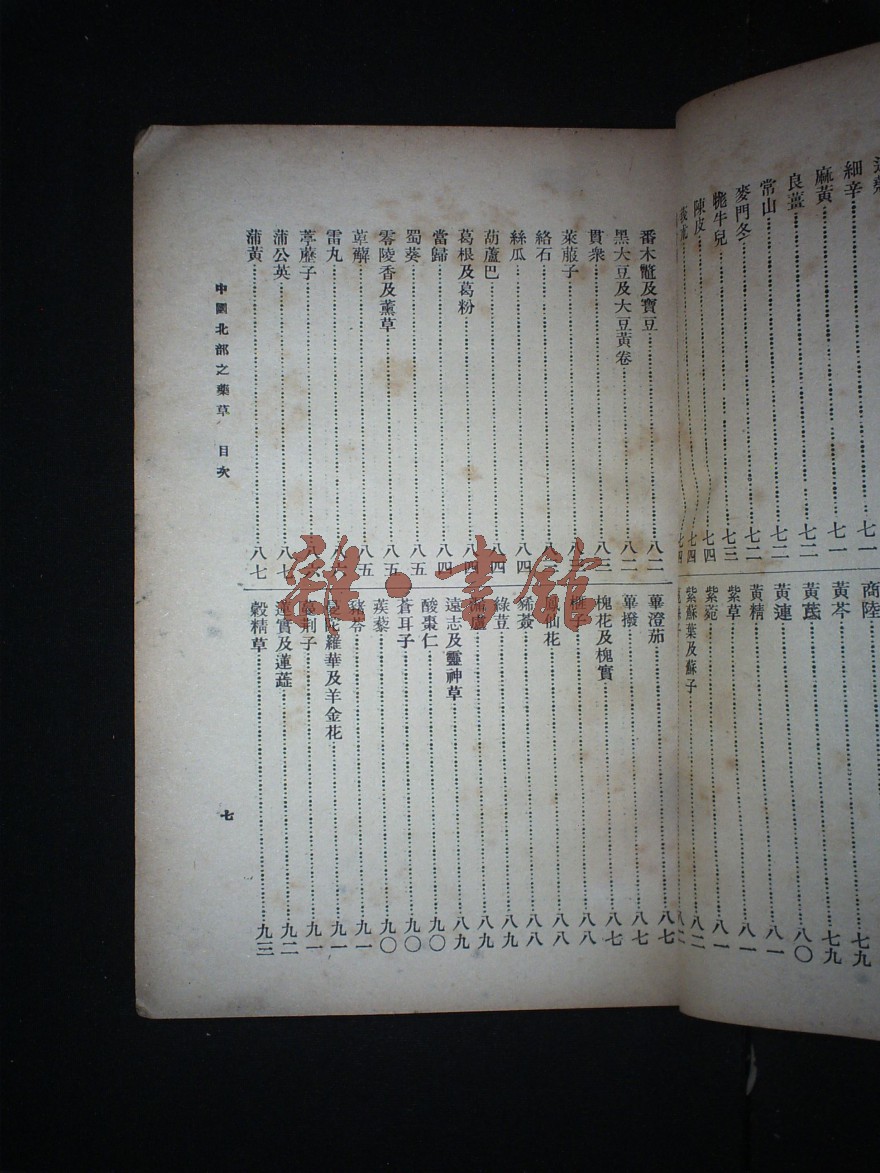 細辛……七一
麻黃……七一
良薑……七二
常山……七二
麥門冬……七二
牻牛兒……七三
陳皮……七四
商陸……七九
黃芩……七九
黃蓍……八〇
黃連……八一
黃精……八一
紫草……八一
紫菀……八二
紫蘇葉及蘇子
番木虌及寶豆……八二
黑大豆及大豆黃卷……八二
貫衆……八三
萊菔子……八三
絡石……八三
絲瓜……八四
葫蘆巴……八四
葛根及葛粉……八四
當歸……八四
蜀葵……八五
零陵香及薰草……八五
萆薢……八五
雷丸……八六
葶藶子……八六
蒲公英……八七
蒲黃……八七
蓽澄茄……八七
蓽撥……八七
槐花及槐實……八七
榧子……八八
鳳仙花……八八
豨薟……八八
綠荳……八九
漏蘆……八九
遠志及靈神草……八九
酸棗仁……九〇
蒼耳子……九〇
蒺藜……九〇
豬苓……九一
曼陀羅華及羊金花……九一
蔓荊子……九一
蓮實及蓮蕋……九二
穀精草……九三
中國北部之藥草　目次
七
雜·書館